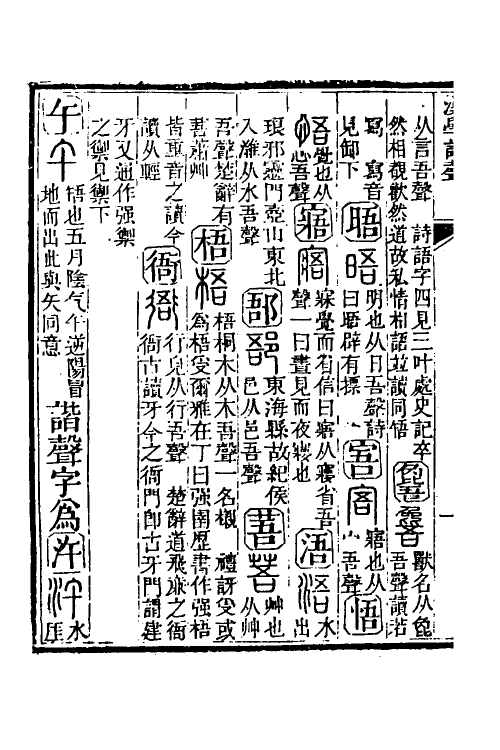 漢學諧聲
从言吾聲 詩語字四見三叶處史記卒
然相覩歡然道故私情相語並讀同悟
𪊍 獸名从㲋
吾聲讀若
寫 寫音
見卸下
晤 明也从日吾聲詩
曰晤辟有摽
㝛 寤也从
宀吾聲
悟
覺也从
心吾聲
寤 寐覺而有信曰寤从㝱省吾
聲一曰晝見而夜㝱也
浯 水出
琅邪靈門壺山東北
入濰从水吾聲
郚 東海縣故紀侯
邑从邑吾聲
䓊 艸也
从艸
吾聲楚辭有
䓊蕭艸
梧 梧桐木从木吾聲一名櫬 禮訝受或
爲梧受爾雅在丁曰强圉歷書作强梧
皆重音之讀今
讀从輕
衙 行皃从行吾聲 楚辭道飛廉之衙
衙古讀牙今之衙門卽古牙門謂建
牙又通作强禦
之禦見禦下
午 啎也五月陰气午逆陽冒
地而出此與矢同意
諧聲字爲
汻 水
厓